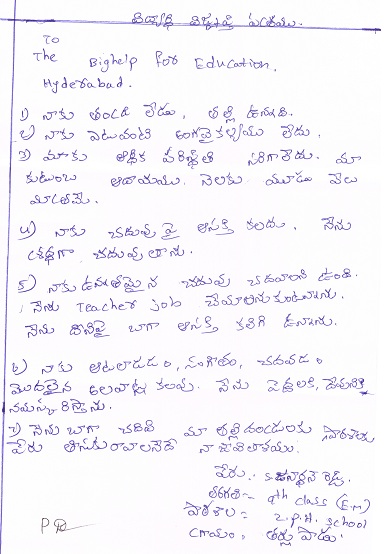 విద్యార్థి విజ్ఞప్తి పత్రము.
To
The Bighelp for Education.
Hyderabad.
1) నాకు తండ్రి లేడు, తల్లి ఉన్నది.
2) నాకు ఎటువంటి అంగవైకల్యము లేదు.
3) మాకు ఆర్థిక పరిస్థితి సరిగాలేదు. మా
కుటుంబ ఆదాయము నెలకు మూడు వేలు
మాత్రమే.
4) నాకు చదువు పై ఆసక్తి కలదు. నేను
శ్రద్ధగా చదువుతాను.
5) నాకు ఉన్నతమైన చదువు చదవాలని ఉంది.
నేను Teacher job చేయాలనుకుంటున్నాను.
నేను దానిపై బాగా ఆసక్తి కలిగి ఉన్నాను.
6) నాకు ఆటలాడడం, సంగీతం, చదవడం
మొదలైన అలవాట్లు కలవు. నేను పెద్దలకి, దేవునికి
నమస్కరిస్తాను.
7) నేను బాగా చదివి మా తల్లిదండ్రులకు పాఠశాలకు
పేరు తీసుకురావాలనేదే నా
పేరు:-
తరగతి:- 9th class (E.M)
పాఠశాల:- Z.P.H. School
గ్రామం,